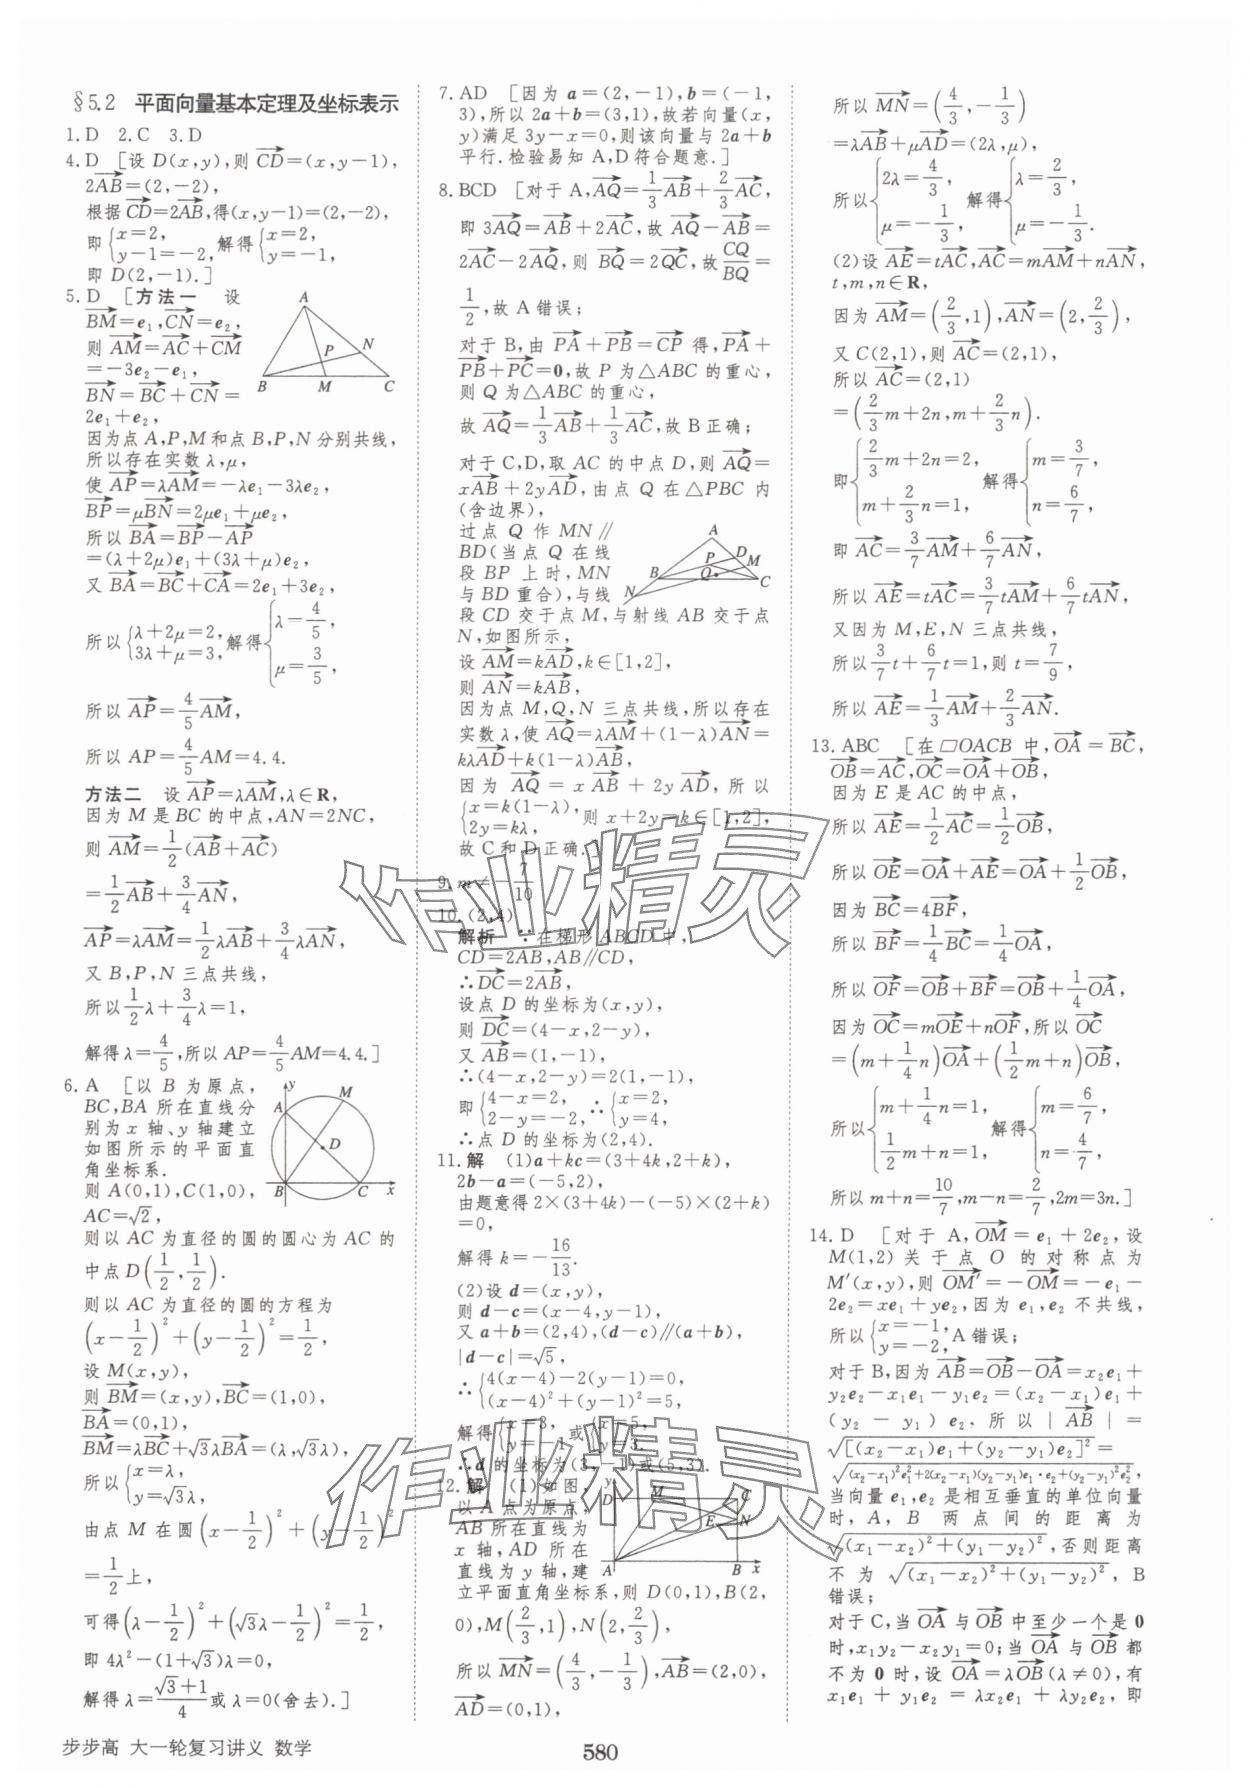 §5.2 平面向量基本定理及坐标表示
1.D 2.C 3.D
4.D [设 D(x,y),则 →CD=(x,y−1),
2→AB=(2,−2),
根据→CD=2→AB,得(x,y−1)=(2,−2),
即{x=2, y−1=−2, 解得{x=2, y=−1,
即 D(2,−1).]
5.D [方法一 设
→BM=e₁,→CN=e₂,
则 →AM=→AC+→CM
=−3e₂−e₁,
→BN=→BC+→CN=
2e₁+e₂,
A P N B M C
因为点 A,P,M和点 B,P,N分别共线,
所以存在实数λ,μ,
使 →AP=λ→AM=−λe₁−3λe₂,
→BP=μ→BN=2μe₁+μe₂,
所以 →BA=→BP−→AP
=(λ+2μ)e₁+(3λ+μ)e₂,
又 →BA=→BC+→CA=2e₁+3e₂,
所以{λ+2μ=2, 3λ+μ=3, 解得{λ=4/5, μ=3/5,
所以 →AP=4/5→AM,
所以 AP=4/5AM=4.4.
方法二 设 →AP=λ→AM,λ∈R,
因为 M 是 BC 的中点,AN=2NC,
则 →AM=1/2(→AB+→AC)
=1/2→AB+3/4→AN,
→AP=λ→AM=1/2λ→AB+3/4λ→AN,
又 B,P,N 三点共线,
所以1/2λ+3/4λ=1,
解得λ=4/5,所以 AP=4/5AM=4.4.]
6.A [以 B 为原点,
BC,BA 所在直线分
别为 x 轴、y 轴建立
如图所示的平面直
角坐标系.
则 A(0,1),C(1,0),
AC=√2,
y M A D B C x
则以 AC 为直径的圆的圆心为 AC 的
中点 D(1/2,1/2).
则以 AC 为直径的圆的方程为
(x−1/2)²+(y−1/2)²=1/2,
设 M(x,y),
则 →BM=(x,y),→BC=(1,0),
→BA=(0,1),
→BM=λ→BC+√3λ→BA=(λ,√3λ),
所以{x=λ, y=√3λ,
由点 M 在圆(x−1/2)²+(y−1/2)²
=1/2上,
可得(λ−1/2)²+(√3λ−1/2)²=1/2,
即 4λ²−(1+√3)λ=0,
解得λ=(√3+1)/4或λ=0(舍去).]
7.AD [因为 a=(2,−1),b=(−1,
3),所以 2a+b=(3,1),故若向量(x,
y)满足 3y−x=0,则该向量与 2a+b
平行.检验易知 A,D 符合题意.]
8.BCD [对于 A,→AQ=1/3→AB+2/3→AC,
即 3→AQ=→AB+2→AC,故 →AQ−→AB=
2→AC−2→AQ,则 →BQ=2→QC,故CQ/BQ=
1/2,故 A 错误;
对于 B,由 →PA+→PB=→CP 得,→PA+
→PB+→PC=0,故 P 为△ABC 的重心,
则 Q 为△ABC 的重心,
故 →AQ=1/3→AB+1/3→AC,故 B 正确;
对于 C,D,取 AC 的中点 D,则 →AQ=
x→AB+2y→AD,由点 Q 在△PBC 内
(含边界),
过点 Q 作 MN∥
BD(当点 Q 在线
段 BP 上时,MN
与 BD 重合),与线
A P D M B Q C N
段 CD 交于点 M,与射线 AB 交于点
N,如图所示,
设 →AM=k→AD,k∈[1,2],
则 →AN=k→AB,
因为点 M,Q,N 三点共线,所以存在
实数λ,使 →AQ=λ→AM+(1−λ)→AN=
kλ→AD+k(1−λ)→AB,
因为 →AQ=x→AB+2y→AD,所以
{x=k(1−λ), 2y=kλ, 则 x+2y=k∈[1,2],
故 C 和 D 正确.]
9.m≠−7/10
10.(2,4)
解析 ∵在梯形 ABCD 中,
CD=2AB,AB∥CD,
∴→DC=2→AB,
设点 D 的坐标为(x,y),
则 →DC=(4−x,2−y),
又 →AB=(1,−1),
∴(4−x,2−y)=2(1,−1),
即{4−x=2, 2−y=−2, ∴{x=2, y=4,
∴点 D 的坐标为(2,4).
11.解 (1)a+kc=(3+4k,2+k),
2b−a=(−5,2),
由题意得 2×(3+4k)−(−5)×(2+k)
=0,
解得 k=−16/13.
(2)设 d=(x,y),
则 d−c=(x−4,y−1),
又 a+b=(2,4),(d−c)∥(a+b),
|d−c|=√5,
∴{4(x−4)−2(y−1)=0, (x−4)²+(y−1)²=5,
解得{x=3, y=−1 或{x=5, y=3.
∴d 的坐标为(3,−1)或(5,3).
12.解 (1)如图,
以 A 点为原点,
AB 所在直线为
x 轴,AD 所在
直线为 y 轴,建
y D M C E N A B x
立平面直角坐标系,则 D(0,1),B(2,
0),M(2/3,1),N(2,2/3),
所以 →MN=(4/3,−1/3),→AB=(2,0),
→AD=(0,1),
所以 →MN=(4/3,−1/3)
=λ→AB+μ→AD=(2λ,μ),
所以{2λ=4/3, μ=−1/3, 解得{λ=2/3, μ=−1/3.
(2)设 →AE=t→AC,→AC=m→AM+n→AN,
t,m,n∈R,
因为 →AM=(2/3,1),→AN=(2,2/3),
又 C(2,1),则 →AC=(2,1),
所以 →AC=(2,1)
=(2/3m+2n,m+2/3n).
即{2/3m+2n=2, m+2/3n=1, 解得{m=3/7, n=6/7,
即 →AC=3/7→AM+6/7→AN,
所以 →AE=t→AC=3/7t→AM+6/7t→AN,
又因为 M,E,N 三点共线,
所以3/7t+6/7t=1,则 t=7/9,
所以 →AE=1/3→AM+2/3→AN.
13.ABC [在▱OACB 中,→OA=→BC,
→OB=→AC,→OC=→OA+→OB,
因为 E 是 AC 的中点,
所以 →AE=1/2→AC=1/2→OB,
所以 →OE=→OA+→AE=→OA+1/2→OB,
因为 →BC=4→BF,
所以 →BF=1/4→BC=1/4→OA,
所以 →OF=→OB+→BF=→OB+1/4→OA,
因为 →OC=m→OE+n→OF,所以 →OC
=(m+1/4n)→OA+(1/2m+n)→OB,
所以{m+1/4n=1, 1/2m+n=1, 解得{m=6/7, n=4/7,
所以 m+n=10/7,m−n=2/7,2m=3n.]
14.D [对于 A,→OM=e₁+2e₂,设
M(1,2)关于点 O 的对称点为
M′(x,y),则 →OM′=−→OM=−e₁−
2e₂=xe₁+ye₂,因为 e₁,e₂ 不共线,
所以{x=−1, y=−2, A 错误;
对于 B,因为 →AB=→OB−→OA=x₂e₁+
y₂e₂−x₁e₁−y₁e₂=(x₂−x₁)e₁+
(y₂−y₁)e₂,所以|→AB|=
√[(x₂−x₁)e₁+(y₂−y₁)e₂]²=
√(x₂−x₁)²e₁²+2(x₂−x₁)(y₂−y₁)e₁·e₂+(y₂−y₁)²e₂²,
当向量 e₁,e₂ 是相互垂直的单位向量
时,A,B 两点间的距离为
√(x₁−x₂)²+(y₁−y₂)²,否则距离
不为 √(x₁−x₂)²+(y₁−y₂)²,B
错误;
对于 C,当 →OA 与 →OB 中至少一个是 0
时,x₁y₂−x₂y₁=0;当 →OA 与 →OB 都
不为 0 时,设 →OA=λ→OB(λ≠0),有
x₁e₁+y₁e₂=λx₂e₁+λy₂e₂,即
作业精灵
作业精灵
步步高 大一轮复习讲义 数学
580